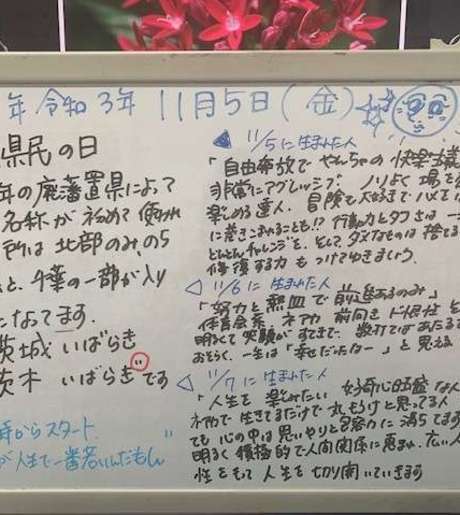 年 令和3年 11月5日(金)
県民の日
年の廃藩置県によって
名称が初めて使われ
所は北部のみ、のち
と、千葉の一部が入り
になってます。
茨城 いばらき
茨木 いばらき です
時からスタート
が人生で一番若いんだもん
11/5に生まれた人
「自由奔放でやんちゃの快楽主義
非常にアグレッシブ ノリよく 場を
楽しめる達人、冒険も大好きでハメを
に巻きこまれることも!? 行動力とタフさは一
どんどんチャレンジを、そして ダメなものは捨てる
修復する力もつけてゆきましょう。
11/6に生まれた人
「努力と熱血で前進あるのみ」
体育会系 ネアカ 前向き ド根性
明るくて笑顔がすてきで、数打てばあたる
おそらく、一生は「幸せだったなー」と思える
11/7に生まれた人
「人生を楽しみたい 好奇心旺盛な人
ネアカで生きてるだけで丸もうけと思ってる人
ても心の中は思いやりと忍耐力に満ちてます
明るく積極的で人間関係に恵まれ、広い人
性をもって人生を切り開いていきます